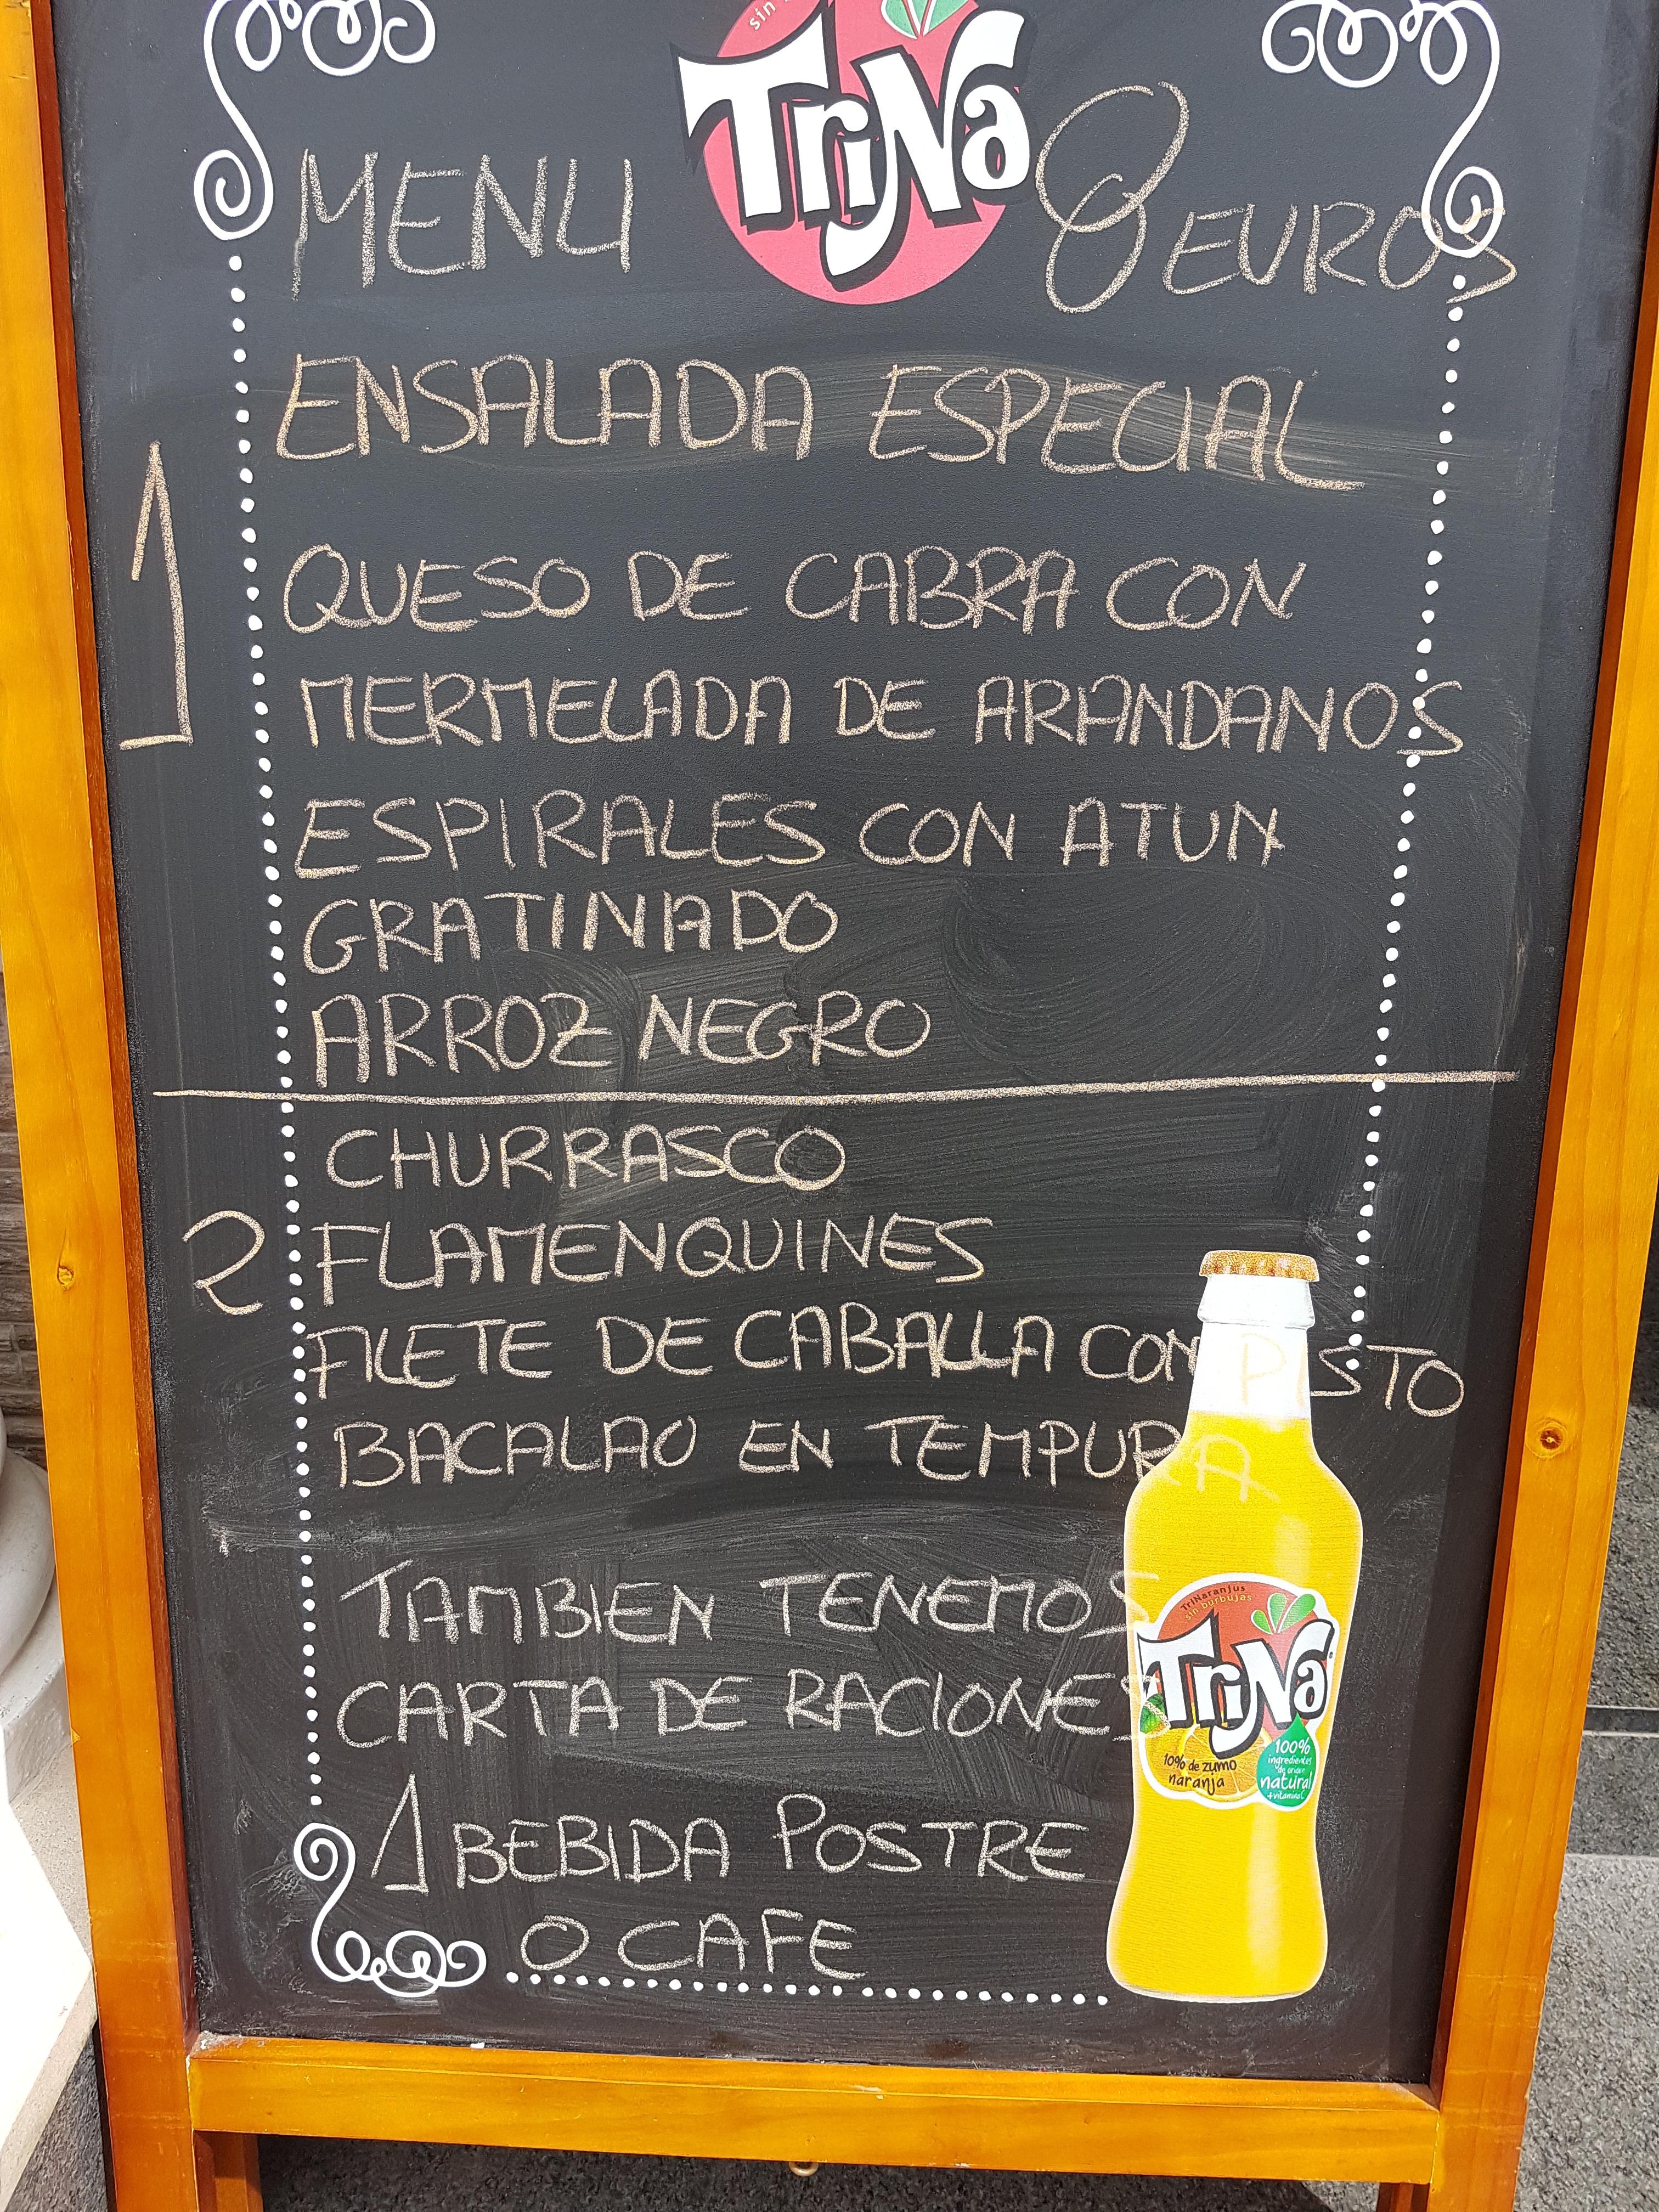 sin
TriNa
MENU 8 EUROS
ENSALADA ESPECIAL
1
QUESO DE CABRA CON
MERMELADA DE ARANDANOS
ESPIRALES CON ATUN
GRATINADO
ARROZ NEGRO
CHURRASCO
2 FLAMENQUINES
FILETE DE CABALLA CON PISTO
BACALAO EN TEMPURA
TAMBIEN TENEMOS
CARTA DE RACIONES
1 BEBIDA POSTRE
O CAFE
TriNaranjus
sin burbujas
TriNa
10% de zumo
naranja
100%
ingredientes
de origen
natural
+vitamina C